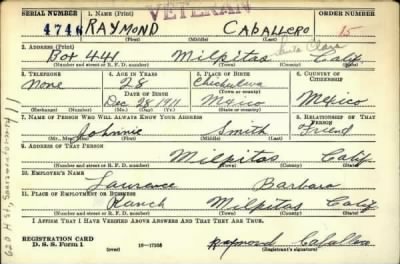 SERIAL NUMBER 1. NAME (Print) VETERAN ORDER NUMBER
4746 RAYMOND CABALLERO 15
(First) (Middle) (Last)
2. ADDRESS (Print)
Box 441 Milpitas Santa Clara Calif.
(Number and street or R. F. D. number) (Town) (County) (State)
3. TELEPHONE 4. AGE IN YEARS 5. PLACE OF BIRTH 6. COUNTRY OF CITIZENSHIP
None 28
DATE OF BIRTH (Town or county)
Dec 28 1911 Mexico Mexico
(Mo.) (Day) (Yr.) (State or country)
7. NAME OF PERSON WHO WILL ALWAYS KNOW YOUR ADDRESS 8. RELATIONSHIP OF THAT PERSON
Johnnie Smith Friend
(Mr., Mrs., Miss) (First) (Middle) (Last)
9. ADDRESS OF THAT PERSON
Milpitas Calif.
(Number and street or R. F. D. number) (Town) (County) (State)
10. EMPLOYER'S NAME
Laurence Barbara
11. PLACE OF EMPLOYMENT OR BUSINESS
Ranch Milpitas Calif
(Number and street or R. F. D. number) (Town) (County) (State)
I AFFIRM THAT I HAVE VERIFIED ABOVE ANSWERS AND THAT THEY ARE TRUE.
REGISTRATION CARD
D. S. S. Form 1 (over) 16—17105 Raymond Caballero
(Registrant's signature)
620 H St, Sacramento